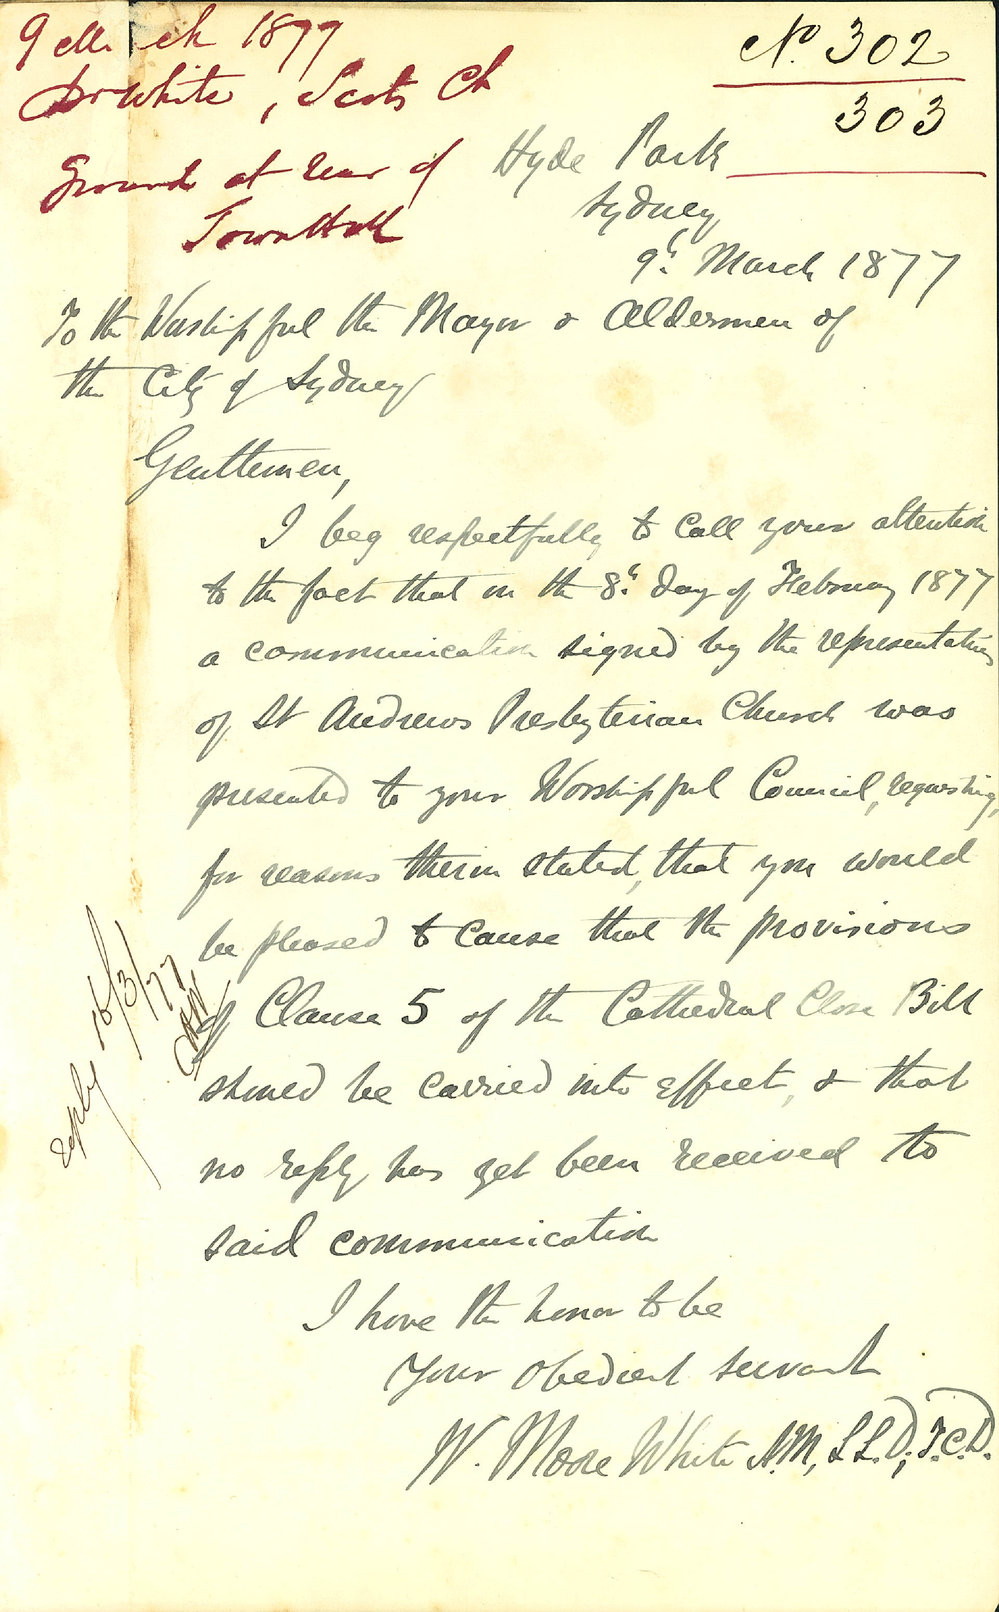 9 March 1877
Dr White, Scots Ch
Ground at rear of
Town Hall
No. 302
303
Hyde Park
Sydney
9th. March 1877
To the Worshipful the Mayor & Aldermen of
the City of Sydney
Gentlemen,
I beg respectfully to call your attention
to the fact that on the 8th. day of February 1877
a communication signed by the representatives
of St Andrews Presbyterian Church was
presented to your Worshipful Council, requesting,
for reasons therein stated, that you would
be pleased to cause that the provisions
of Clause 5 of the Cathedral Close Bill
should be carried into effect, & that
no reply has yet been received to
said communication
I have the honor to be
Your obedient servant
W. Moore White A.M, LL.D; T.C.D.
reply 16/3/77